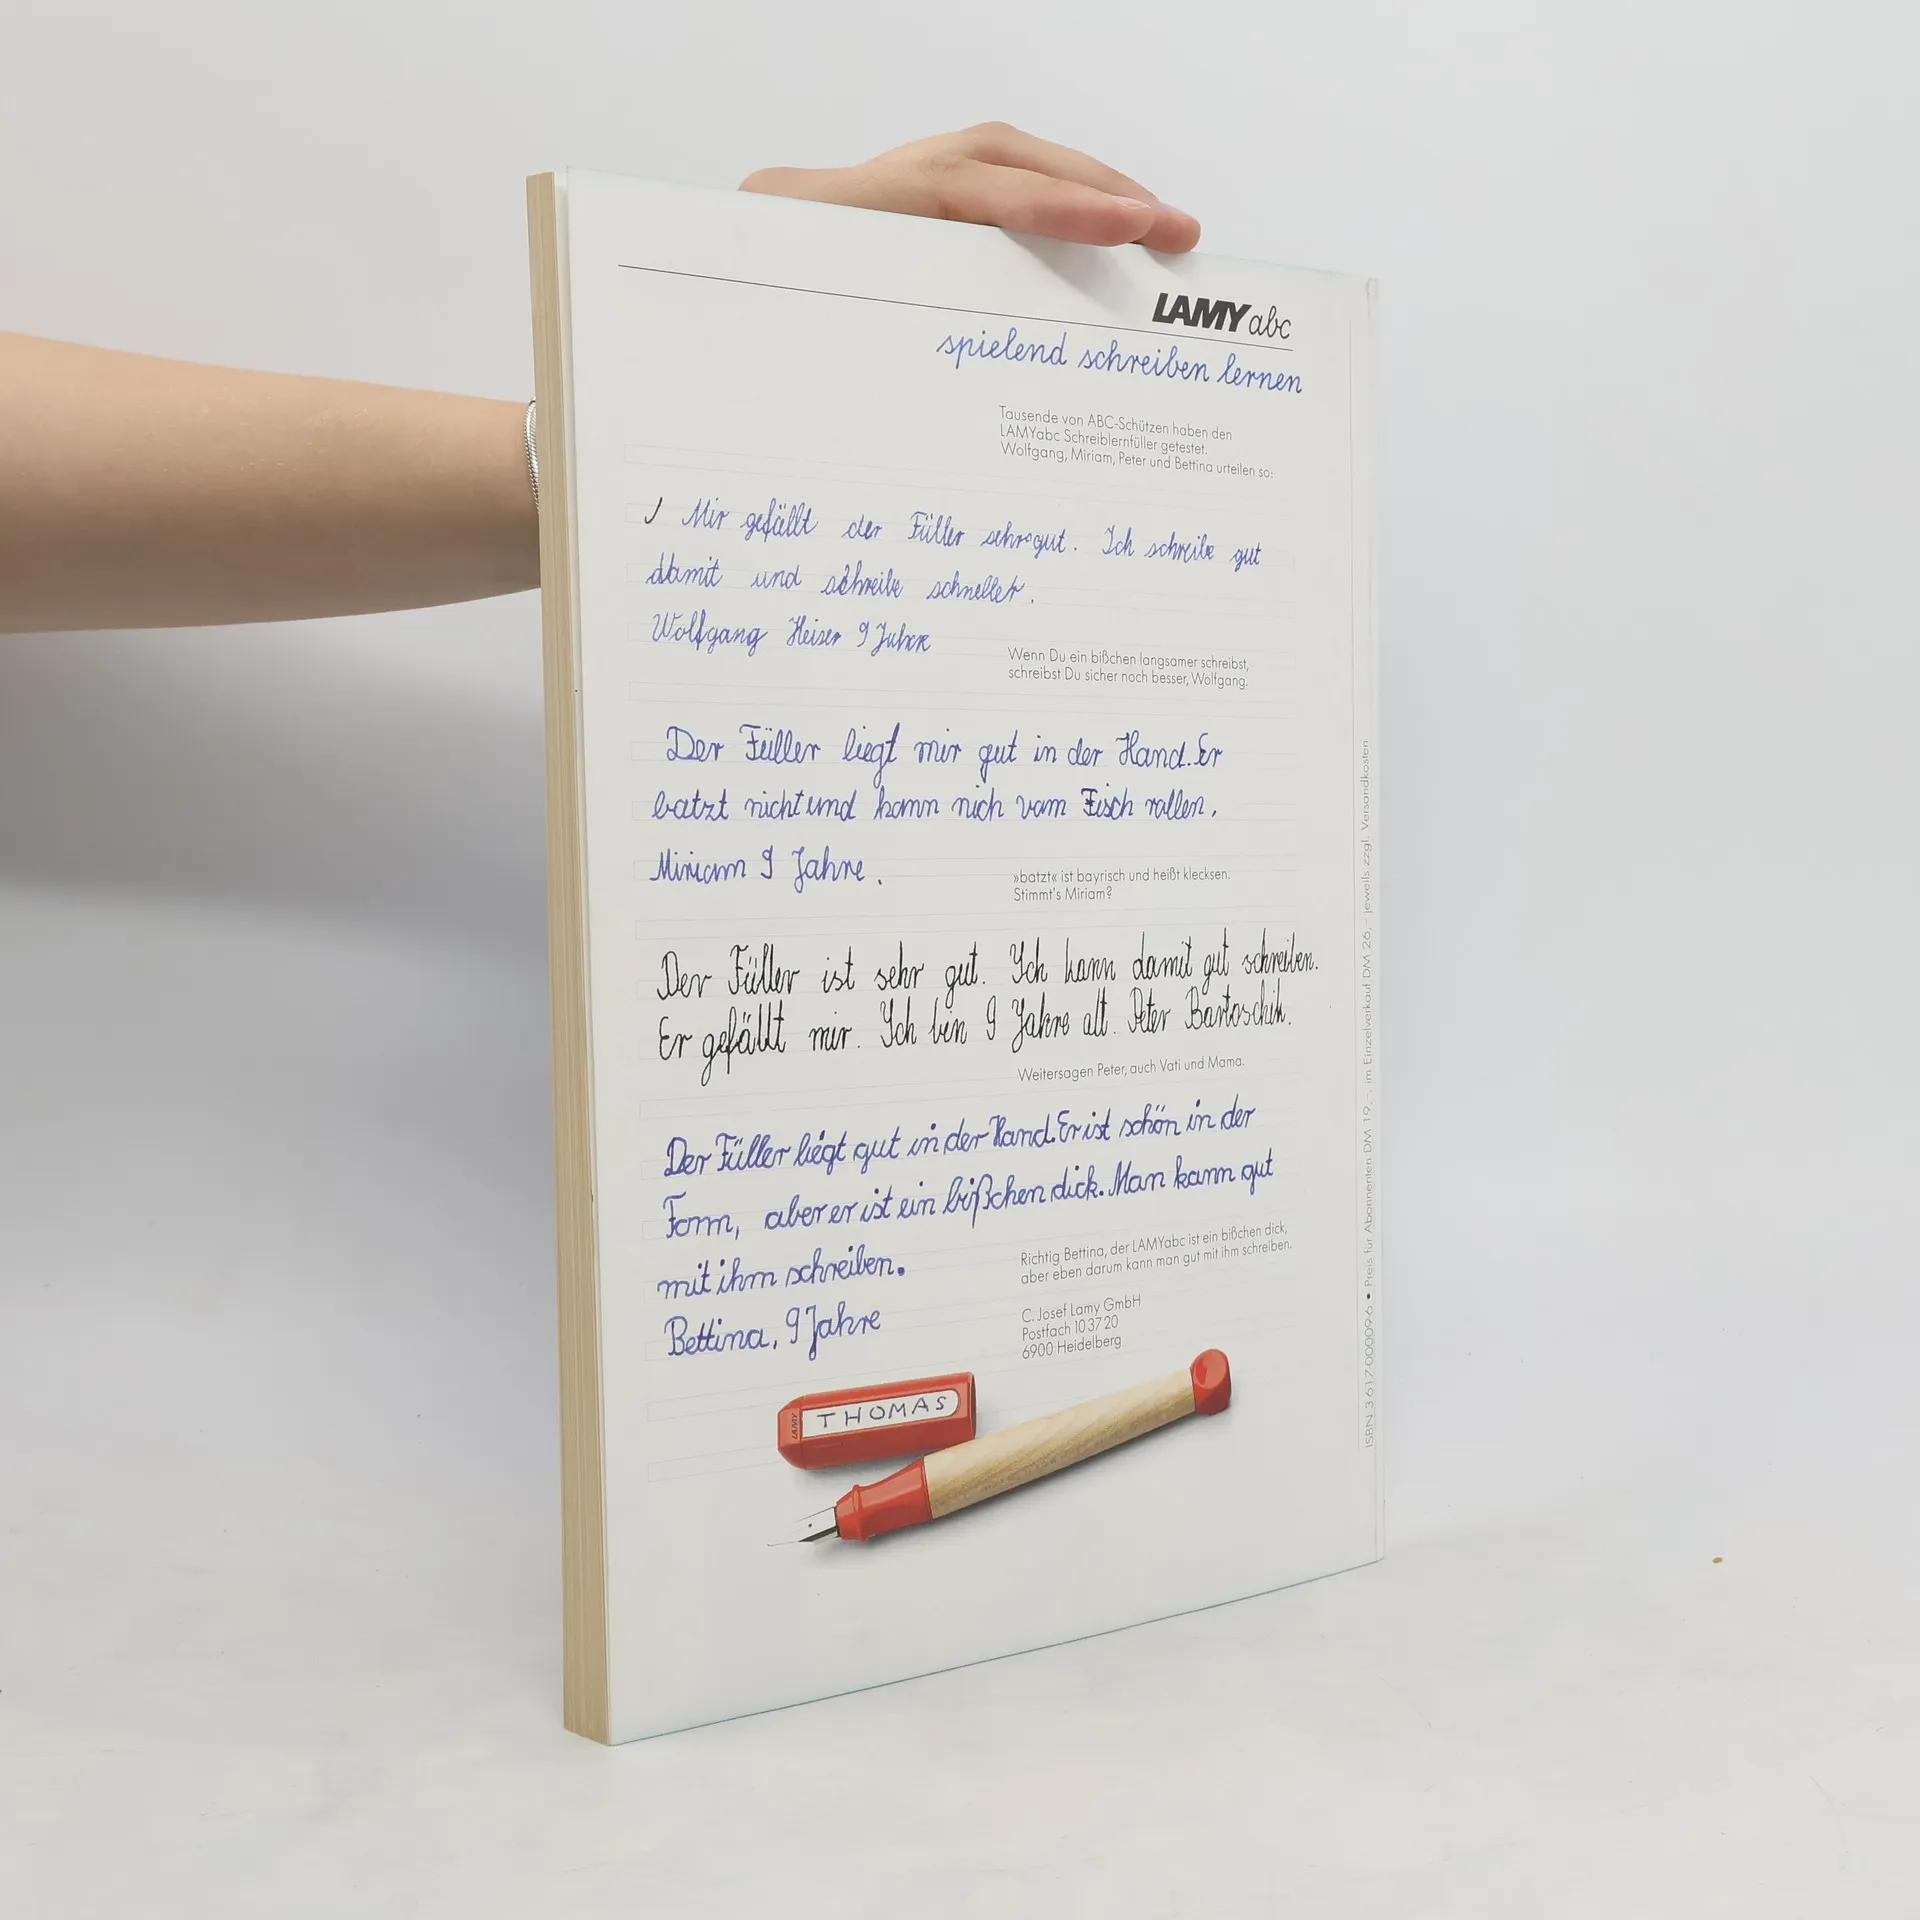 LAMY abc
spielend schreiben lernen
Tausende von ABC-Schützen haben den
LAMYabc Schreiblernfüller getestet.
Wolfgang, Miriam, Peter und Bettina urteilen so:
Mir gefällt der Füller sehr gut. Ich schreibe gut
damit und schreibe schneller.
Wolfgang Heiser 9 Jahre
Wenn Du ein bißchen langsamer schreibst,
schreibst Du sicher noch besser, Wolfgang.
Der Füller liegt mir gut in der Hand. Er
batzt nicht und kann nich vom Tisch rollen.
Miriam 9 Jahre.
»batzt« ist bayrisch und heißt klecksen.
Stimmt's Miriam?
Der Füller ist sehr gut. Ich kann damit gut schreiben.
Er gefällt mir. Ich bin 9 Jahre alt. Peter Bartoschik.
Weitersagen Peter, auch Vati und Mama.
Der Füller liegt gut in der Hand. Er ist schön in der
Form, aber er ist ein bißchen dick. Man kann gut
mit ihm schreiben.
Bettina, 9 Jahre
Richtig Bettina, der LAMYabc ist ein bißchen dick,
aber eben darum kann man gut mit ihm schreiben.
C. Josef Lamy GmbH
Postfach 10 37 20
6900 Heidelberg
THOMAS
LAMY
ISBN 3-617-00009-6 • Preis für Abonnenten DM 19,–, im Einzelverkauf DM 26,– jeweils zzgl. Versandkosten